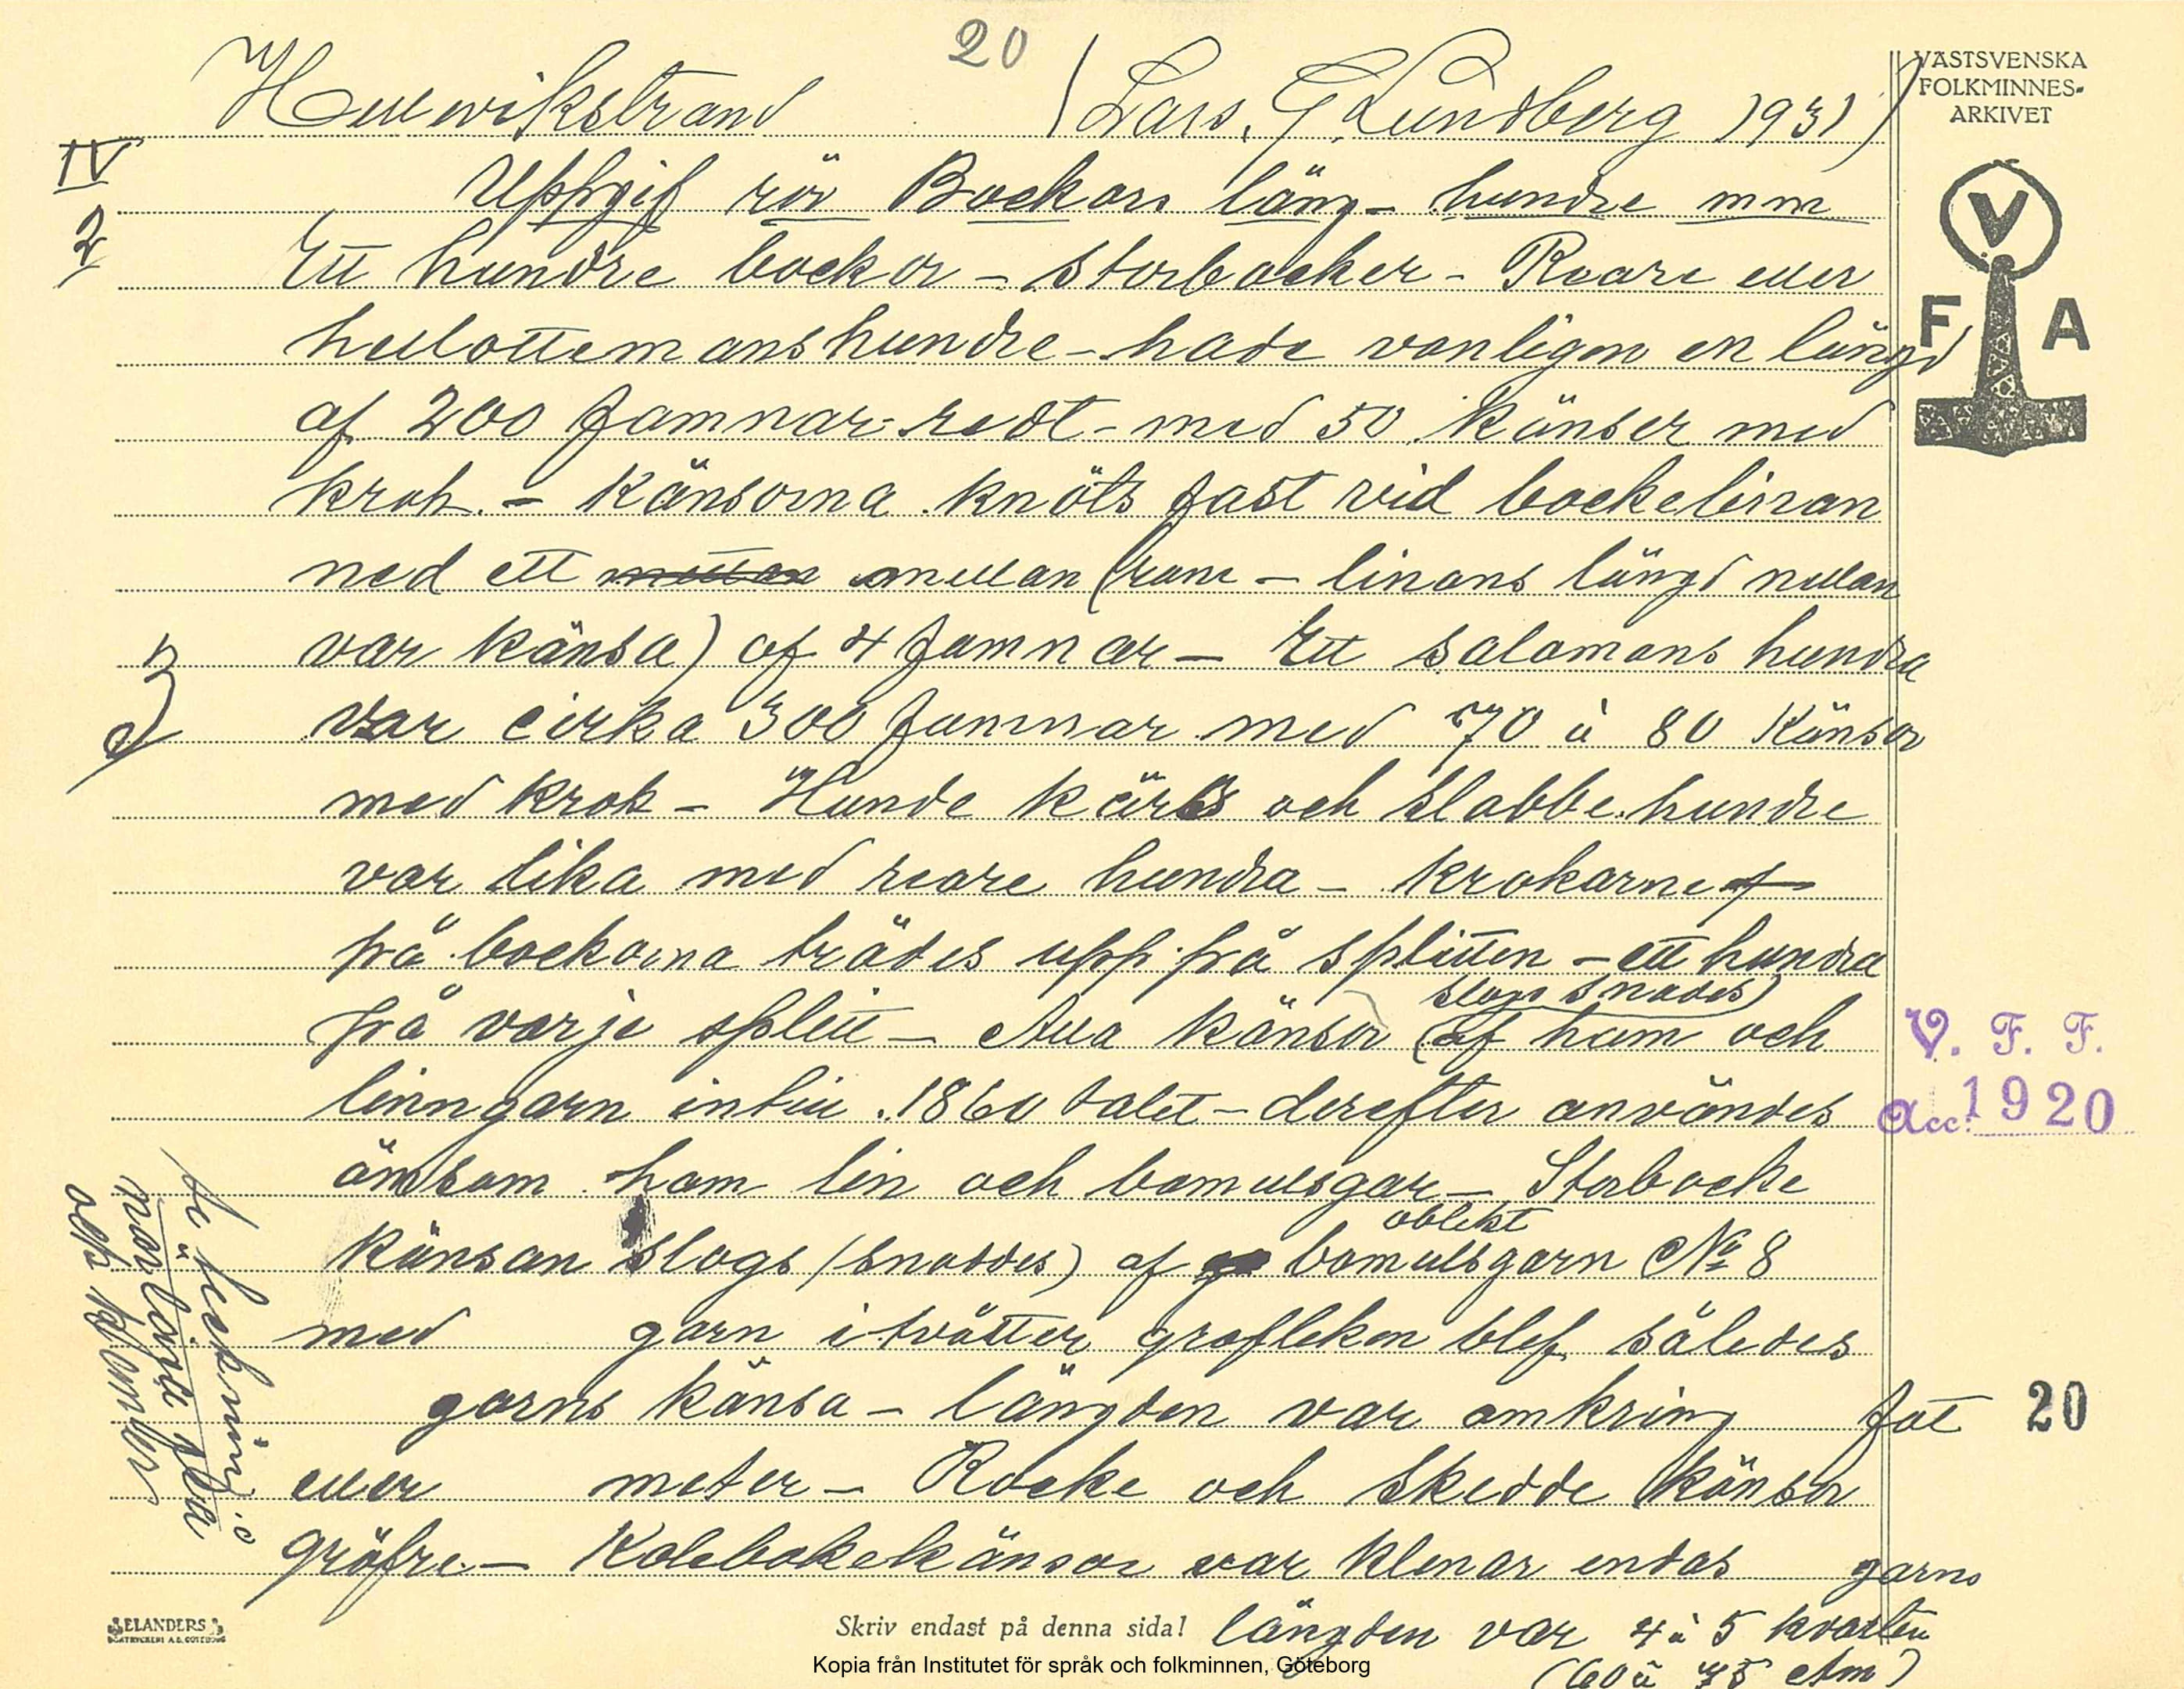 20
Hellewikstrand (Lars. G. Lundberg 1931)
VÄSTSVENSKA
FOLKMINNES-
ARKIVET
IV
2
Uppgif rör Backors läng- hundre mm
Ett hundre backor - Storbacker - Roare eller
helottemanshundre - hade vanligen en längd
af 200 famnar redt - med 50 känser med
krok. - Känsorna knöts fast vid backelinan
med ett mellan (rum - linans längd mellan
var känsa) af 4 famnar - Ett salomans hundra
var cirka 300 famnar med 70 à 80 Känsor
med krok - Hunde kärls och slabbe hundre
var lika med roare hundra - krokarne
frå backorna trädes upp på splitten - ett hundra
slogs snodes)
på varje splitt - Alla känsor (af ham och
linngarn intill 1860 talet - derefter användes
ömsom ham lin och bomullsgar - Storbacke
oblekt
känsan slogs (snoddes) af bomullsgarn No 8
med garn i tvåtter grofleken blef således
garns känsa - längden var omkring fot
eller meter - Rocke och Skedde känsor
gröfre - Kolebakekänsor var klenar endas garns
längden var 4 à 5 kvarter
(60 à 75 ctm)
V
F A
V. F. F.
Acc. 1920
20
se teckning
närlagd
olla
ELANDERS
BOKTRYCKERI A.B. GÖTEBORG
Skriv endast på denna sida!
Kopia från Institutet för språk och folkminnen, Göteborg